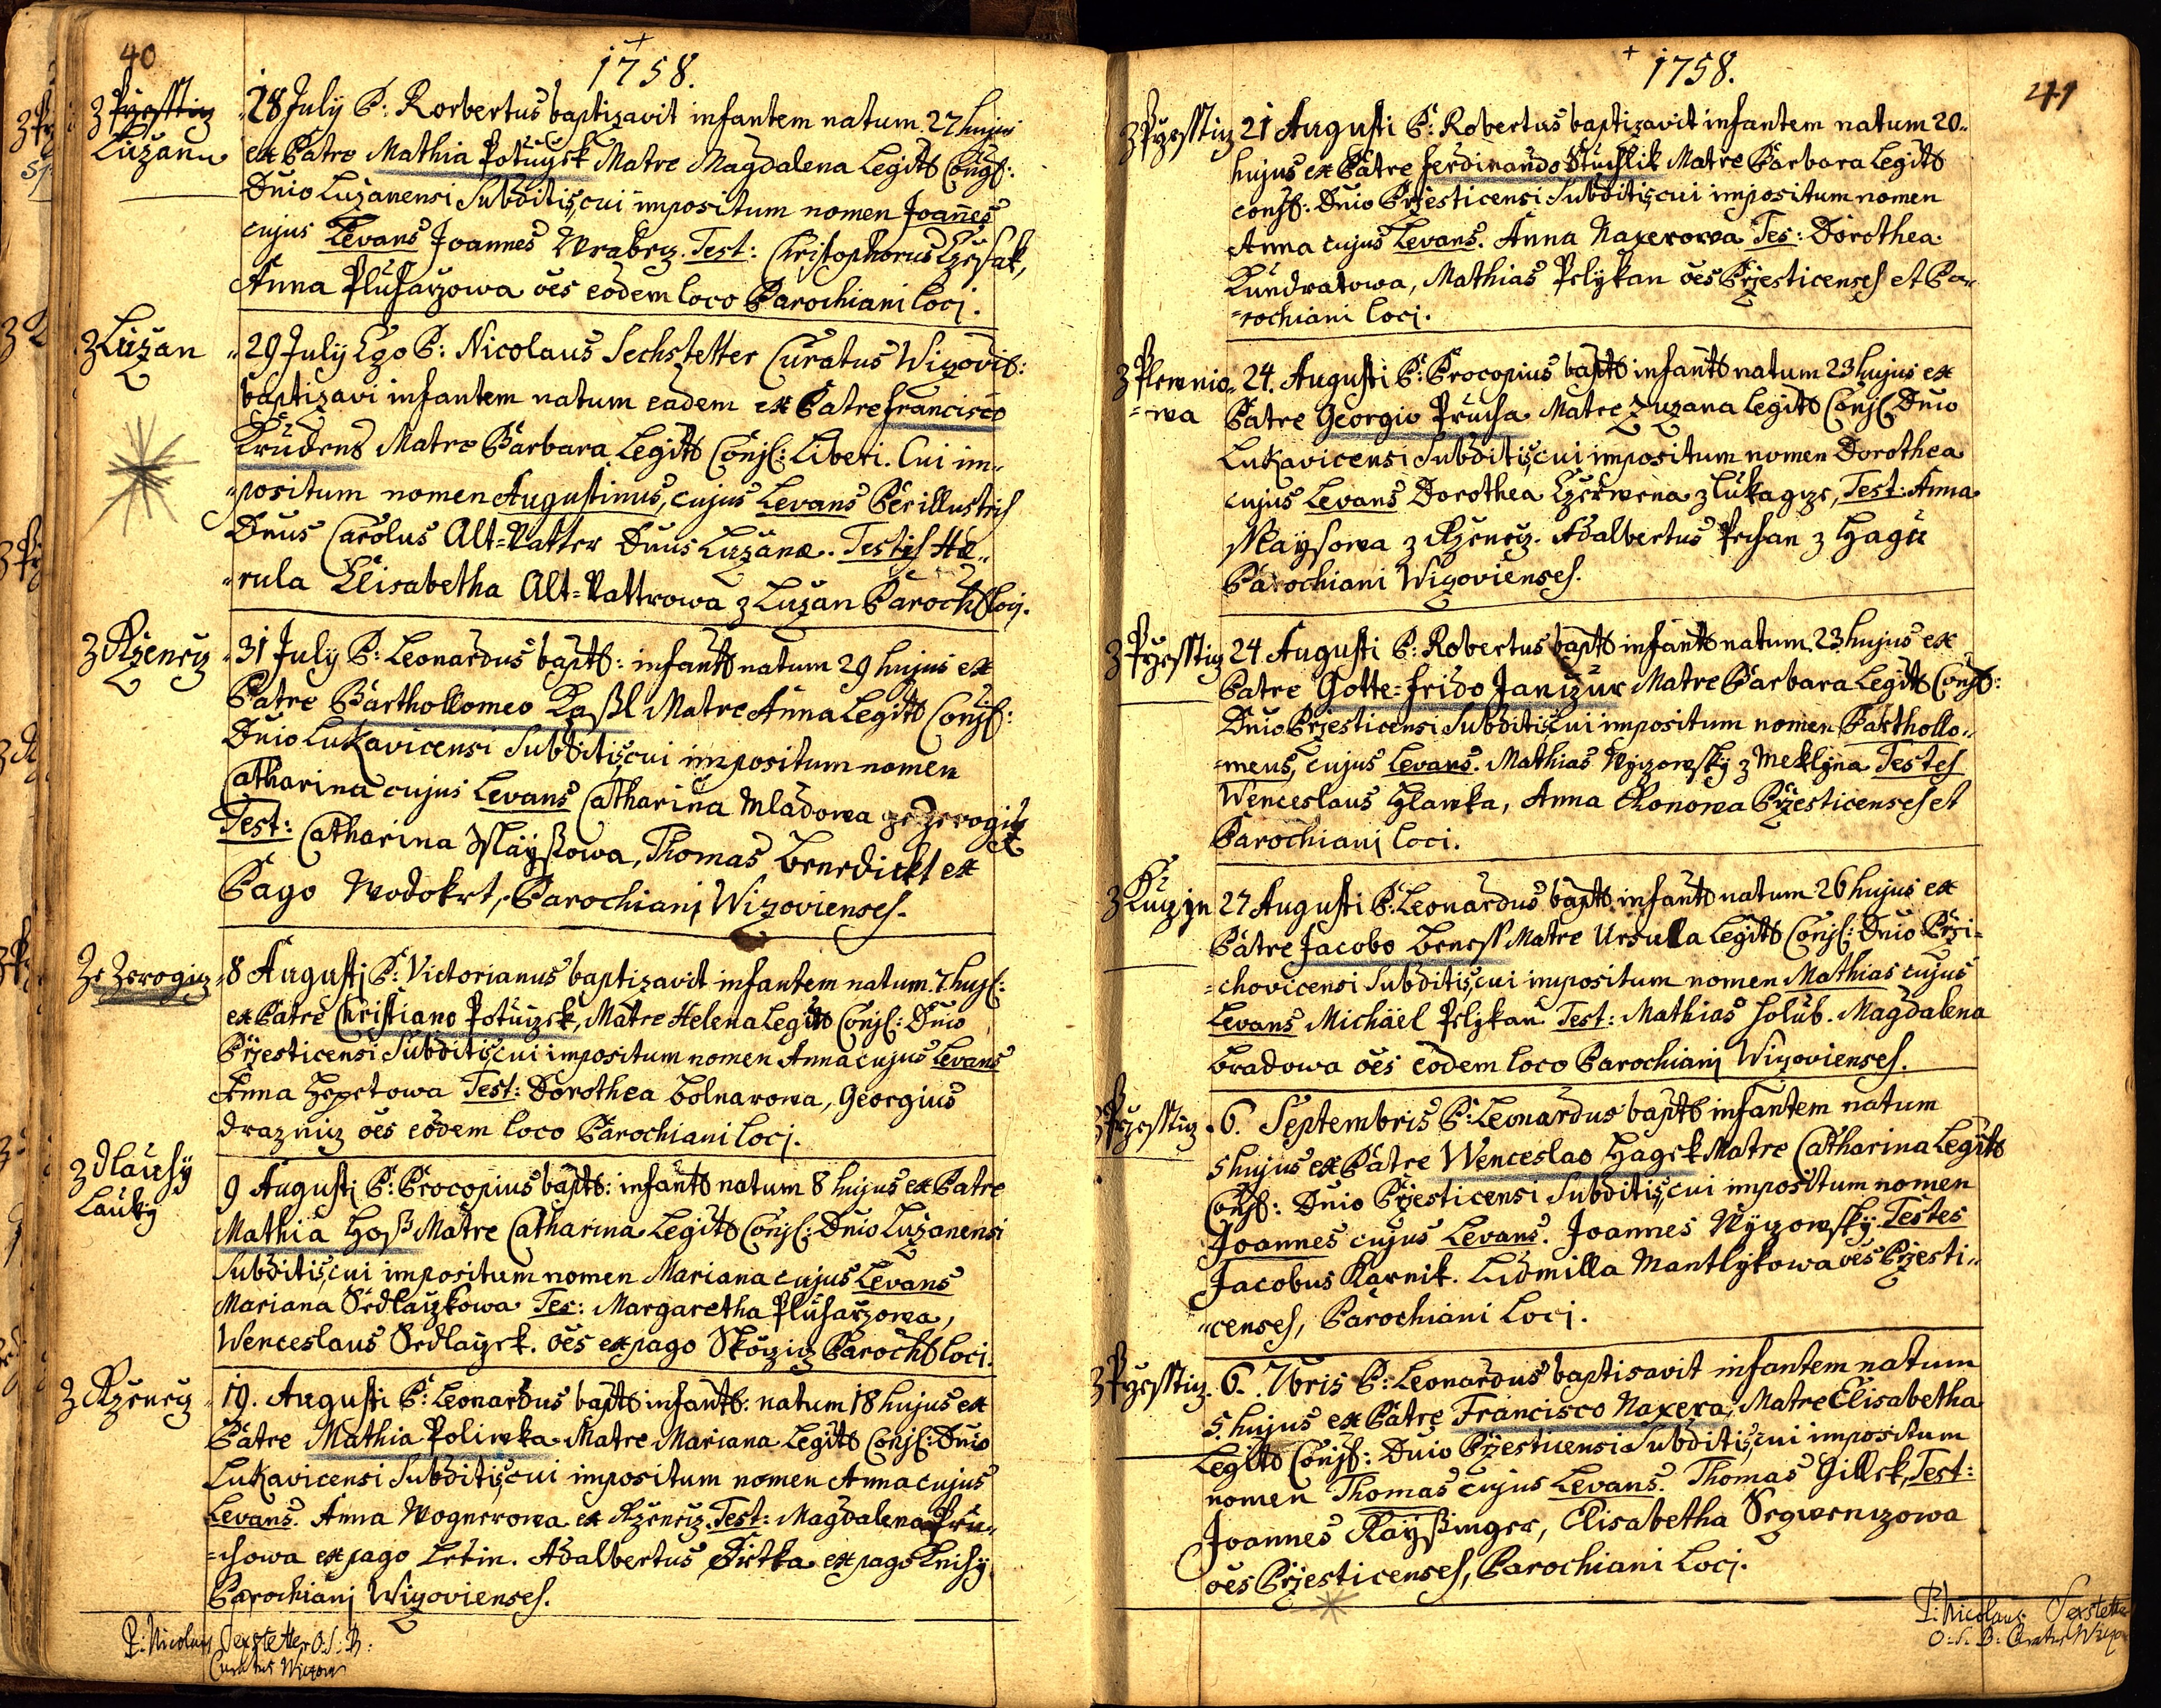 40
1758.
z Przesstiz
Luzan
28 July P: Rorbertus baptizavit infantem natum 27 hujus
ex Patre Mathia Potuczek Matre Magdalena Legit Conj:
Dnio Luzanensi Subditis, cui impositum nomen Joannes
cujus Levans Joannes Wrabecz. Test: Christophorus
Anna Pluharzowa oes eodem loco Parochiani loci.
z Luzan
29 July Ego P: Nicolaus Sechstetter Curatus Wizovi:
baptizavi infantem natum eadem ex Patre Francisco
Matre Barbara Legit Conj: Liberi. Cui im=
=positum nomen Augustinus, cujus Levans Perillustris
Dnus Carolus Alt=Vatter Dnus Luzanæ. Testis Hæ=
=rula Elisabetha Alt=Vattrowa z Luzan Paroch loci.
z Rzenecz
31 July P: Leonardus bapt: infant natum 29 hujus ex
Patre Barthollomeo Kaßl Matre Anna Legit Conj:
Dnio Lukavicensi Subditis, cui impositum nomen
Catharina cujus Levans Catharina Mladowa ze Zerogicz
Test: Catharina Mayßowa, Thomas Benedickt ex
Pago Wodokrt, Parochiani Wizovienses.
Ze Zerogicz
8 Augusti P: Victorianus baptizavit infantem natum 7 huj:
ex Patre Christiano Potuczek, Matre Helena Legit Conj: Dnio
Przesticensi Subditis, cui impositum nomen Anna cujus Levans
Anna Test: Dorothea Bolnarowa, Georgius
Drazniz oes eodem loco Parochiani loci.
z Dlauhy
Lauky
9 Augusti P: Procopius bapt: infant natum 8 hujus ex Patre
Mathia Hoß Matre Catharina Legit Conj: Dnio Luzanensi
Subditis, cui impositum nomen Mariana cujus Levans
Mariana Sedlaczkowa Tes: Margaretha Pluharzowa,
Wenceslaus Sedlaczek. oes ex pago Skoczicz Paroch loci.
z Rzenecz
19. Augusti P: Leonardus bapt infant: natum 18 hujus ex
Patre Mathia Poliwka Matre Mariana Legit Conj: Dnio
Lukavicensi Subditis, cui impositum nomen Anna cujus
Levans. Anna Wognerowa ex Rzenecz. Test: Magdalena Pru=
=chowa ex pago Letin. Adalbertus ex pago Lnihy
Parochiani Wizovienses.
P: Nicolaus Sexstetter O: S: B:
Curatus Wizov
1758.
41
z Przesstiz
21 Augusti P: Robertus baptizavit infantem natum 20=
hujus ex Patre Ferdinando Stuchlik Matre Barbara Legit
conj: Dnio Przesticensi Subditis, cui impositum nomen
Anna cujus Levans. Anna Naxerowa Tes: Dorothea
Kundratowa, Mathias Pelykan oes Przesticenses et Pa=
=rochiani loci.
z Plewnio=
=wa
24. Augusti P: Procopius bapt infant natum 23 hujus ex
Patre Georgio Prucha Matre Zuzana Legit Conj Dnio
Lukavicensi Subditis, cui impositum nomen Dorothea
cujus Levans Dorothea Czerwena z Lukagize, Test: Anna
Maysowa z Rzenecz. Adalbertus Pechan z Hagu
Parochiani Wizovienses.
z Przesstiz
24. Augusti P: Robertus bapt infant natum 23 hujus ex
Patre Gotte=frido Janczur Matre Barbara Legit Conj:
Dnio Przesticensi Subditis, cui impositum nomen Barthollo=
=meus, cujus Levans. Mathias Nyczowsky z Meklyna Testes
Wenceslaus Hlawka, Anna Chonowa Przesticenses et
Parochiani loci.
z Kuczyn
27 Augusti P: Leonardus bapt infant natum 26 hujus ex
Patre Jacobo Beness Matre Ursulla Legit Conj: Dnio Przi=
=chovicensi Subditis, cui impositum nomen Mathias cujus
Levans Michäel Pelykan Test: Mathias Holub. Magdalena
Bradowa oes eodem loco Parochiani Wizovienses.
z Przesstiz
6. Septembris P: Leonardus bapt infantem natum
5 hujus ex Patre Wenceslao Hagek Matre Catharina Legit
Conj: Dnio Przesticensi Subditis, cui impositum nomen
Joannes cujus Levans. Joannes Nyczowsky. Testes
Jacobus Karnik. Ludmilla Mantlykowa oes Przesti=
=censes, Parochiani loci.
z Przesstiz.
6. 7bris P: Leonardus baptisavit infantem natum
5. hujus ex Patre Francisco Naxera, Matre Elisabetha
Legit Conj: Dnio Przesticensi Subditis, cui impositum
nomen Thomas cujus Levans. Thomas Gillek, Test:
Joannes Kayßinger, Elisabetha
oes Przesticenses, Parochiani loci.
P: Nicolaus Sexstetter
O: S: B: Curatus Wizov